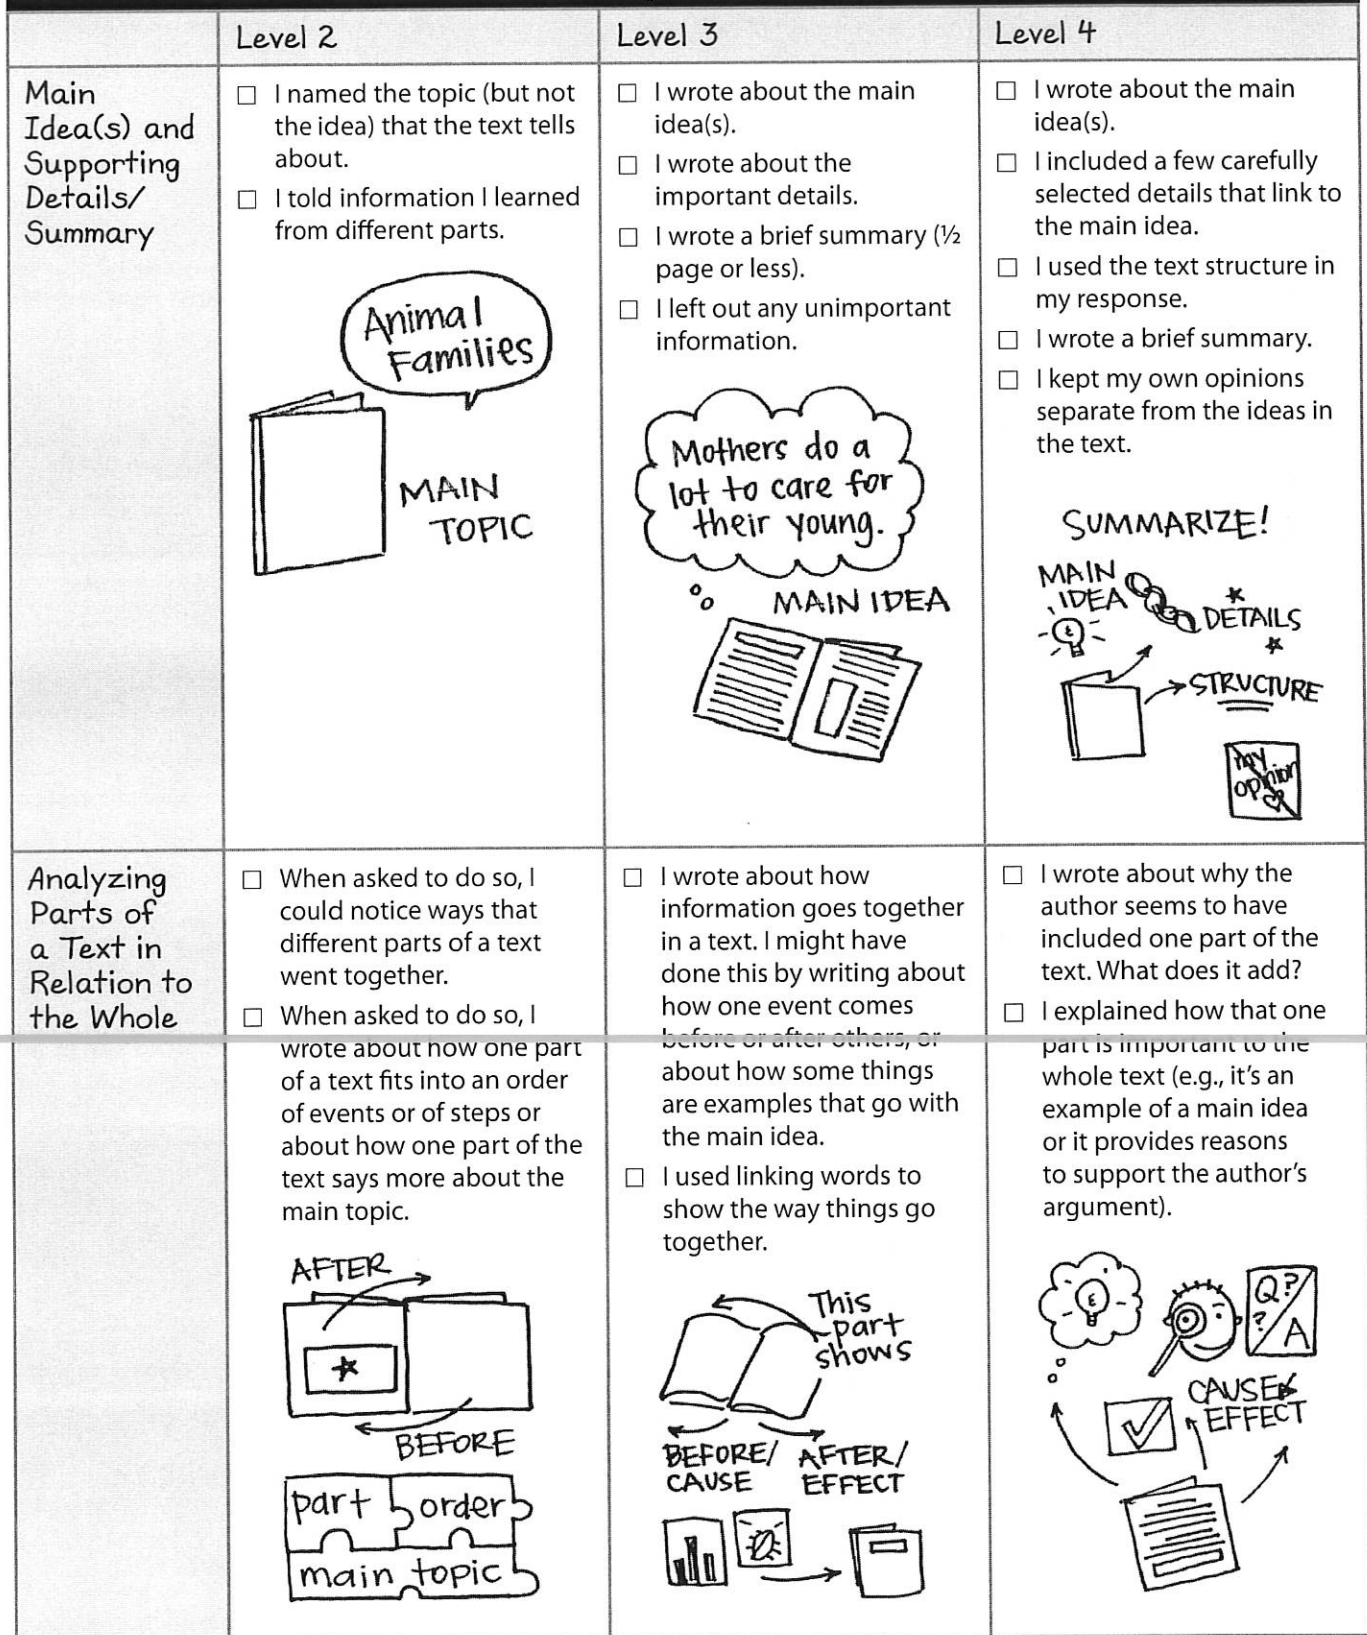 Level 2
Level 3
Level 4
Main
Idea(s) and
Supporting
Details/
Summary
☐ I named the topic (but not
the idea) that the text tells
about.
☐ I told information I learned
from different parts.
Animal
Families
MAIN
TOPIC
☐ I wrote about the main
idea(s).
☐ I wrote about the
important details.
☐ I wrote a brief summary (½
page or less).
☐ I left out any unimportant
information.
Mothers do a
lot to care for
their young.
MAIN IDEA
☐ I wrote about the main
idea(s).
☐ I included a few carefully
selected details that link to
the main idea.
☐ I used the text structure in
my response.
☐ I wrote a brief summary.
☐ I kept my own opinions
separate from the ideas in
the text.
SUMMARIZE!
MAIN
IDEA
DETAILS
STRUCTURE
my
opinion
Analyzing
Parts of
a Text in
Relation to
the Whole
☐ When asked to do so, I
could notice ways that
different parts of a text
went together.
☐ When asked to do so, I
wrote about how one part
of a text fits into an order
of events or of steps or
about how one part of the
text says more about the
main topic.
AFTER
BEFORE
part
order
main topic
☐ I wrote about how
information goes together
in a text. I might have
done this by writing about
how one event comes
before or after others, or
about how some things
are examples that go with
the main idea.
☐ I used linking words to
show the way things go
together.
This
part
shows
BEFORE/
CAUSE
AFTER/
EFFECT
☐ I wrote about why the
author seems to have
included one part of the
text. What does it add?
☐ I explained how that one
part is important to the
whole text (e.g., it's an
example of a main idea
or it provides reasons
to support the author's
argument).
Q?
?
A
CAUSE &
EFFECT